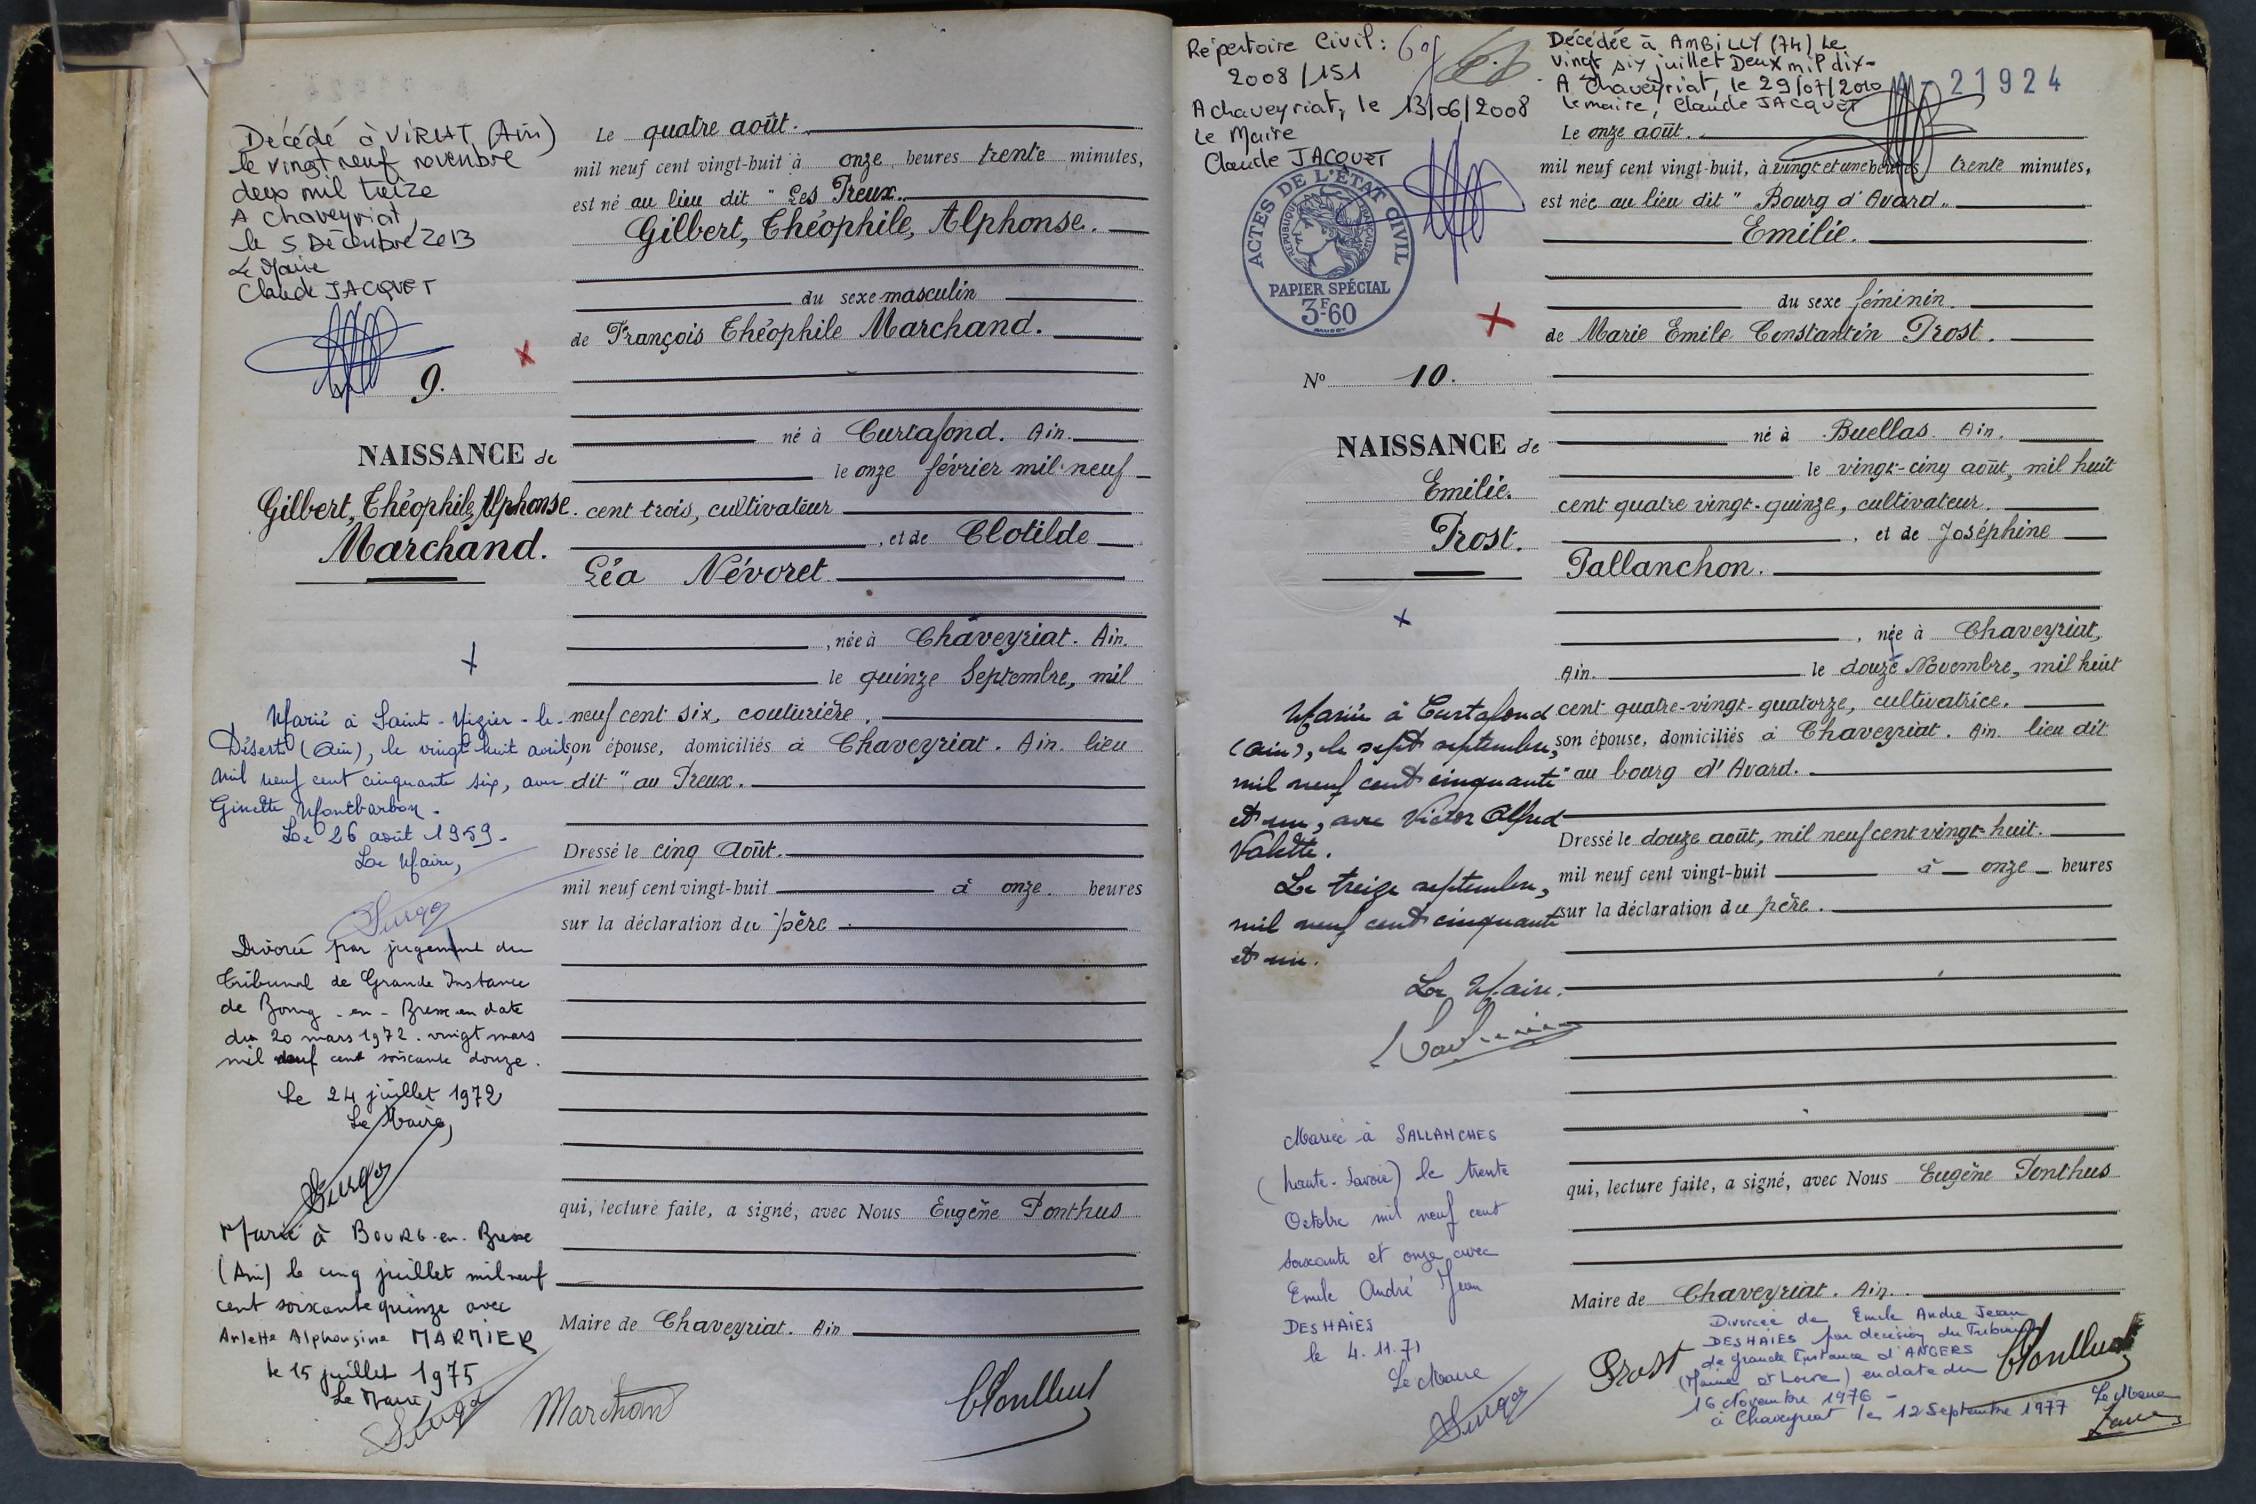 Décédé à VIRIAT (Ain)
le vingt neuf novembre
deux mil treize
A Chaveyriat,
le 5 Décembre 2013
Le Maire
Claude JACQUET
9.
NAISSANCE de
Gilbert, Théophile, Alphonse.
Marchand.
Marié à Saint-Nizier-le-
Désert (Ain), le vingt huit avril
mil neuf cent cinquante six, avec
Ginette Montbarbon.
Le 26 août 1959.
Le Maire,
Divorcé par jugement du
Tribunal de Grande Instance
de Bourg-en-Bresse en date
du 20 mars 1972. vingt mars
mil neuf cent soixante douze.
Le 24 juillet 1972
Le Maire,
Marié à BOURG-en-Bresse
(Ain) le cinq juillet mil neuf
cent soixante quinze avec
Arlette Alphonsine MARMIER
le 15 juillet 1975
Le Maire,
Le quatre août.
mil neuf cent vingt-huit à onze heures trente minutes,
est né au lieu dit "Les Preux.
Gilbert, Théophile, Alphonse.
du sexe masculin
de François Théophile Marchand.
né à Curtafond. Ain.
le onze février mil neuf
cent trois, cultivateur
, et de Clotilde
Léa Névoret
, née à Chaveyriat. Ain.
le quinze Septembre, mil
neuf cent six, couturière.
son épouse, domiciliés à Chaveyriat. Ain. lieu
dit "au Preux.
Dressé le cinq Août.
mil neuf cent vingt-huit à onze. heures
sur la déclaration du père.
qui, lecture faite, a signé, avec Nous Eugène Ponthus
Maire de Chaveyriat. Ain
Marchand
Répertoire Civil:
2008/151
A Chaveyriat, le 13/06/2008
Le Maire
Claude JACQUET
ACTES DE L'ÉTAT CIVIL
RÉPUBLIQUE FRANÇAISE
PAPIER SPÉCIAL
3F60
Nº 10.
NAISSANCE de
Emilie.
Prost.
Mariée à Curtafond
(Ain), le sept septembre,
mil neuf cent cinquante
et un, avec Victor Alfred
Valette.
Le treize septembre,
mil neuf cent cinquante
et un.
Le Maire.
Mariée à SALLANCHES
(haute-Savoie) le trente
Octobre mil neuf cent
soixante et onze avec
Emile André Jean
DESHAIES
le 4.11.71
Le Maire
Décédée à AMBILLY (74) le
vingt six juillet Deux mil dix-
A Chaveyriat, le 29/07/2010
le maire, Claude JACQUET
21924
Le onze août.
mil neuf cent vingt-huit, à vingt et une heures trente minutes,
est née au lieu dit "Bourg d'Avard.
Emilie.
du sexe féminin.
de Marie Emile Constantin Prost.
né à Buellas. Ain.
le vingt-cinq août, mil huit
cent quatre vingt-quinze, cultivateur.
, et de Joséphine
Pallanchon.
, née à Chaveyriat,
Ain. le douze Novembre, mil huit
cent quatre-vingt-quatorze, cultivatrice.
son épouse, domiciliés à Chaveyriat. Ain. lieu dit
"au bourg d'Avard.
Dressé le douze août, mil neuf cent vingt-huit.
mil neuf cent vingt-huit à onze heures
sur la déclaration du père.
qui, lecture faite, a signé, avec Nous Eugène Ponthus
Maire de Chaveyriat. Ain.
Prost
Divorcée de Emile André Jean
DESHAIES par décision du Tribunal
de Grande Instance d'ANGERS
(Maine et Loire) en date du
16 Novembre 1976 -
à Chaveyriat le 12 Septembre 1977 Le Maire